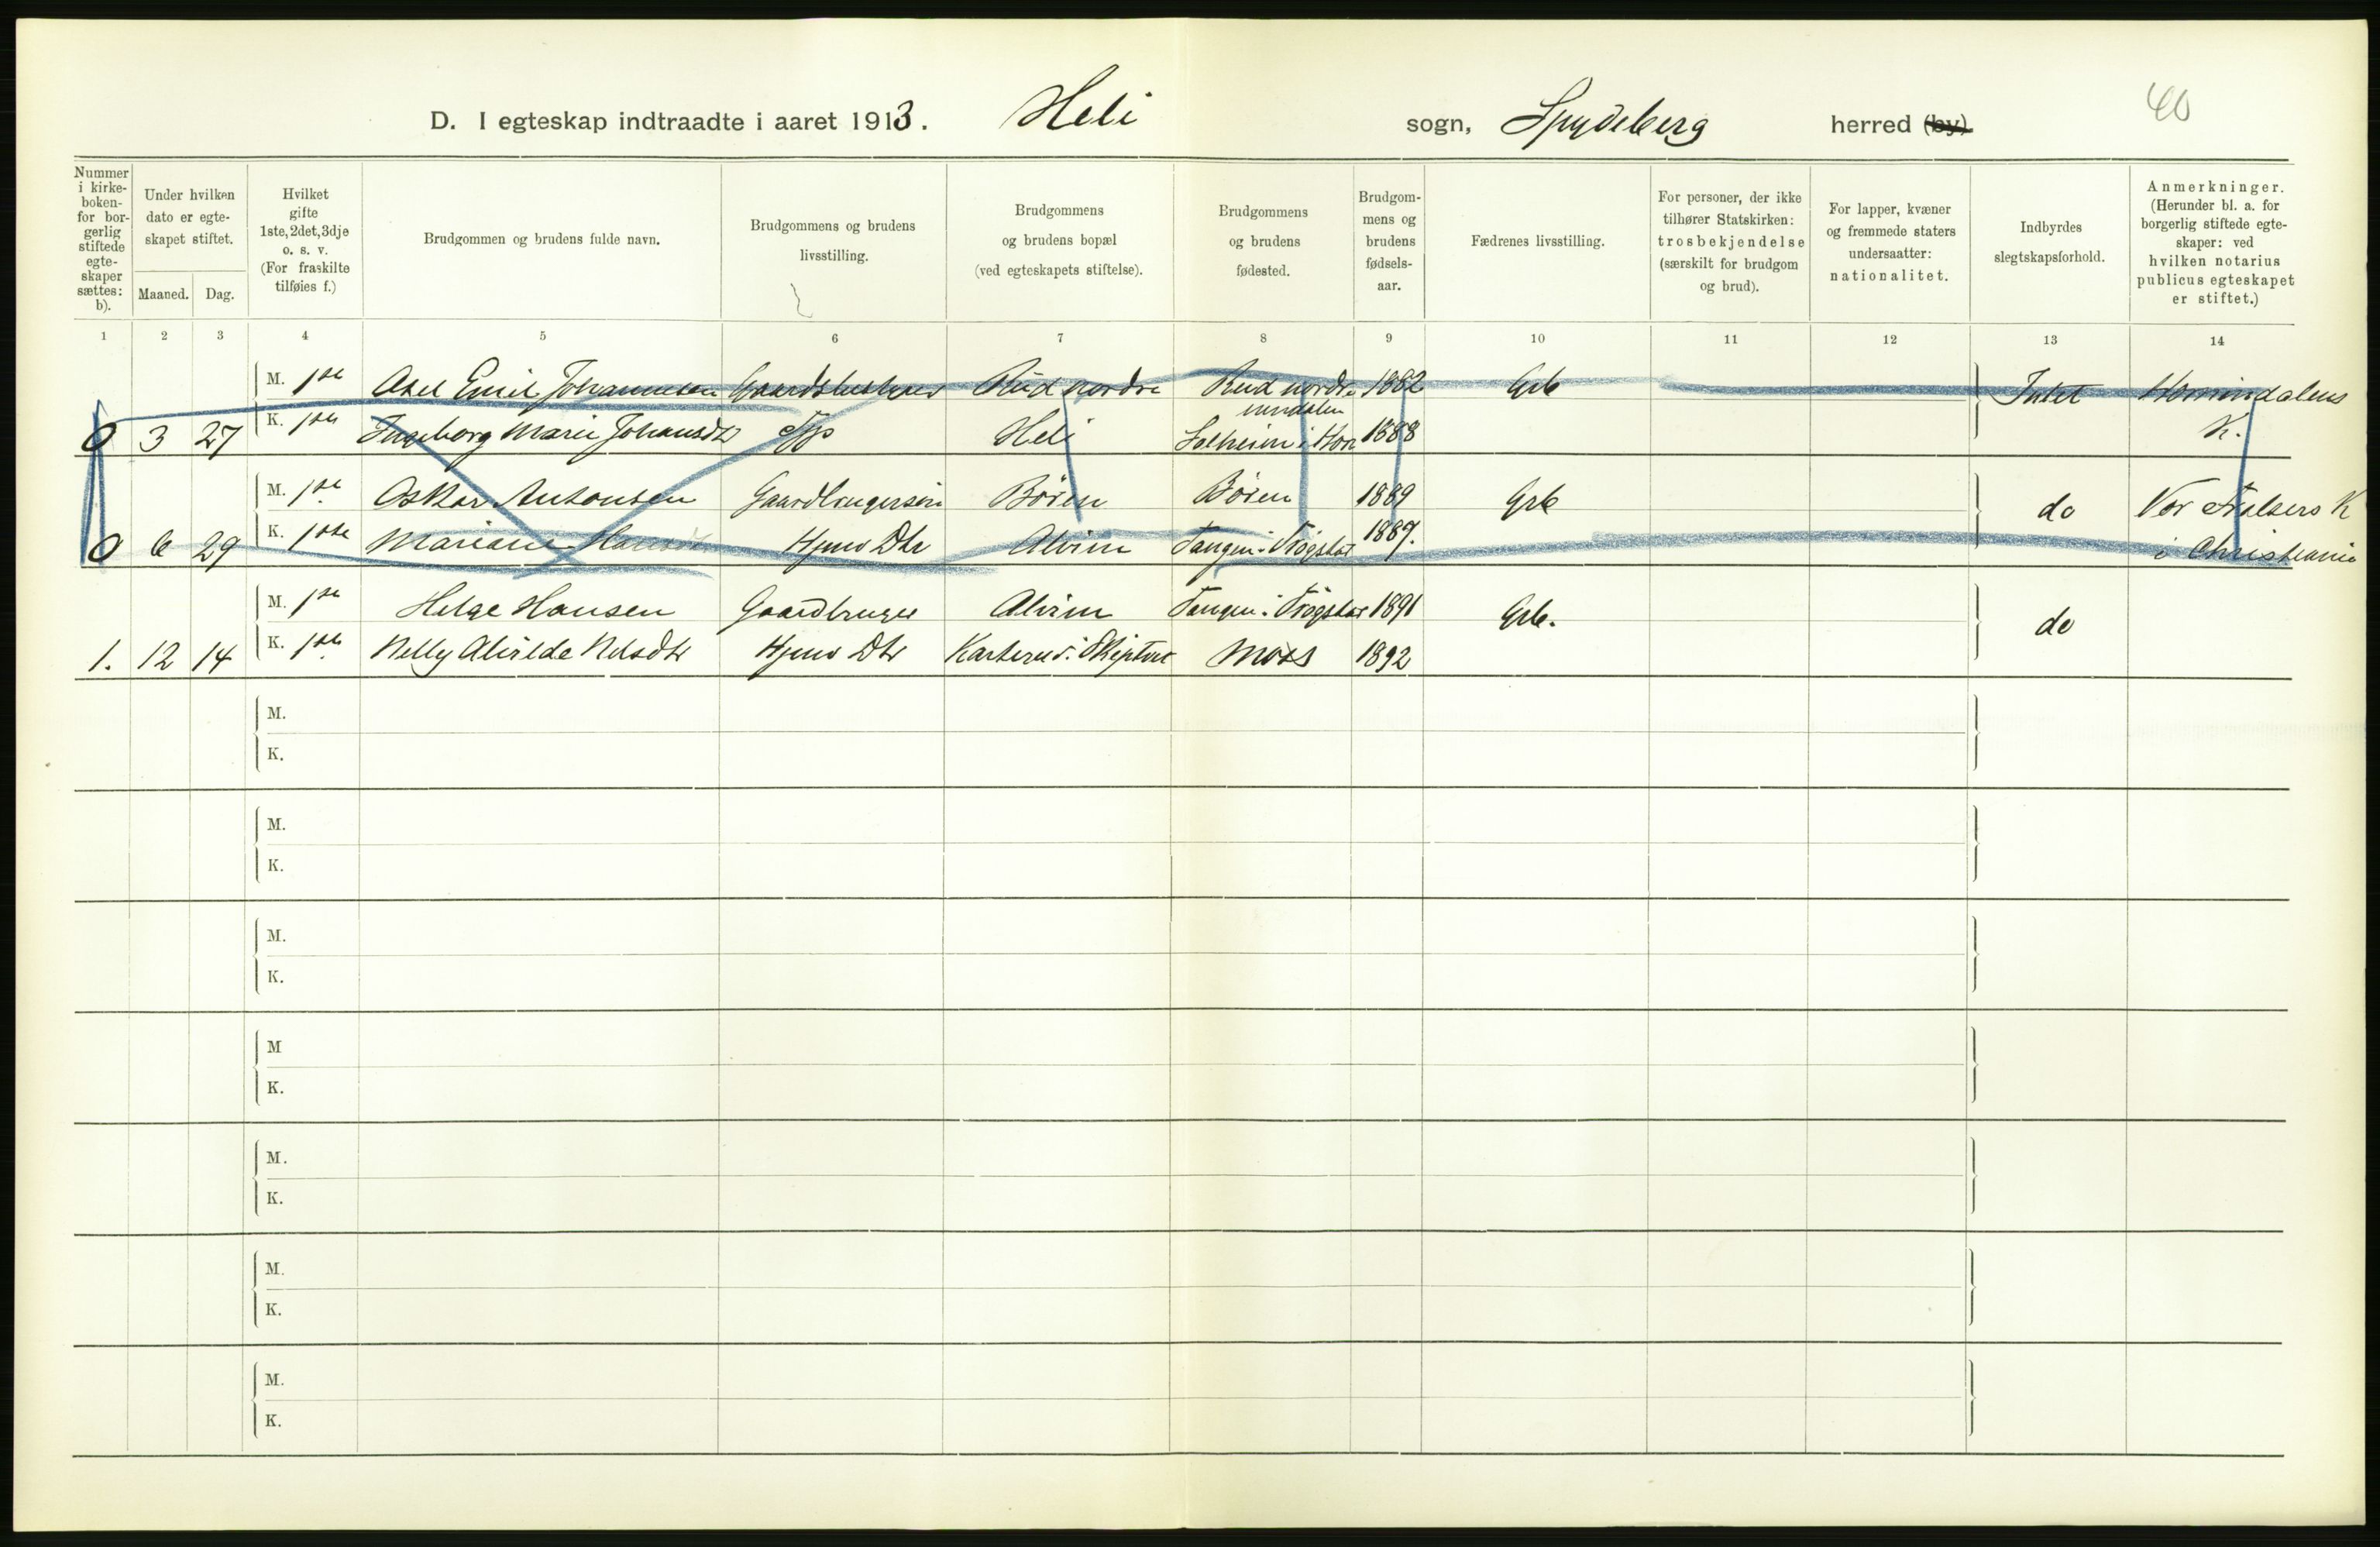 40
D. I egteskap indtraadte i aaret 1913. Heli sogn, Spydeberg herred (by)
Nummer i kirkeboken- for borgerlig stiftede egteskaper sættes: b).
Under hvilken dato er egteskapet stiftet.
Maaned. Dag.
Hvilket gifte 1ste, 2det, 3dje o. s. v. (For fraskilte tilføies f.)
Brudgommen og brudens fulde navn.
Brudgommens og brudens livsstilling.
Brudgommens og brudens bopæl (ved egteskapets stiftelse).
Brudgommens og brudens fødested.
Brudgommens og brudens fødselsaar.
Fædrenes livsstilling.
For personer, der ikke tilhører Statskirken: trosbekjendelse (særskilt for brudgom og brud).
For lapper, kvæner og fremmede staters undersaatter: nationalitet.
Indbyrdes slegtskapsforhold.
Anmerkninger. (Herunder bl. a. for borgerlig stiftede egteskaper: ved hvilken notarius publicus egteskapet er stiftet.)
1 2 3 4 5 6 7 8 9 10 11 12 13 14
M. 1ste Axel Emil Johannesen Rud nordre Rud nordre 1882 Grb Intet
0 3 27 K. 1ste Ingeborg Marie Johansdtr Heli Solheim i Hon 1888 K.
M. 1ste Oskar Antonsen Gaardbrugersön Bören Bören 1889 Grb do Vor Frelsers K
0 6 29 K. 1ste Mariane Hansdtr Hjmv Dtr Alvim Tangen i Trögstad 1887. i Christiania
M. 1ste Helge Hansen Gaardbruger Alvim Tangen i Trögstad 1891 Grb. do
1. 12 14 K. 1ste Nelly Alvilde Nilsdtr Hjmv Dtr Karterud i Skiptvet Moss 1892
M.
K.
M.
K.
M.
K.
M
K.
M.
K.
M.
K.
M.
K.